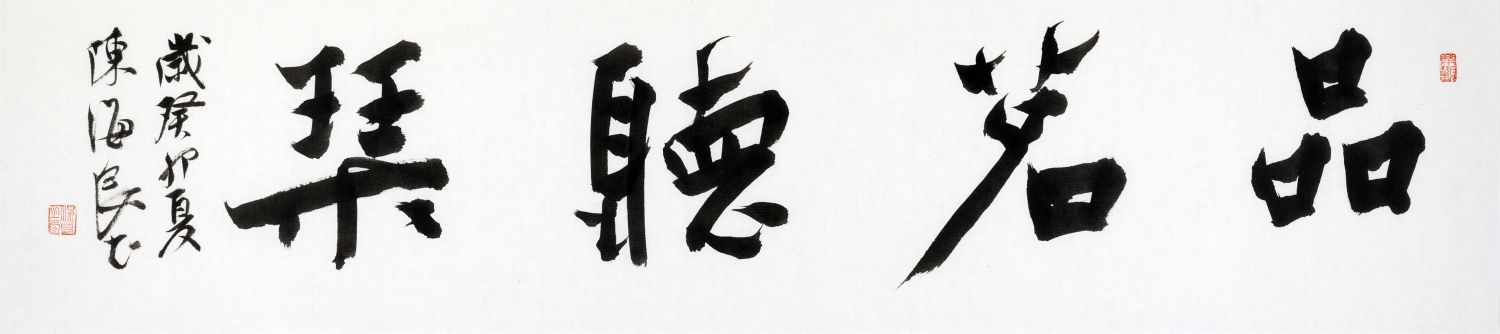 品茗聽琹
歲癸卯夏
陳海良书